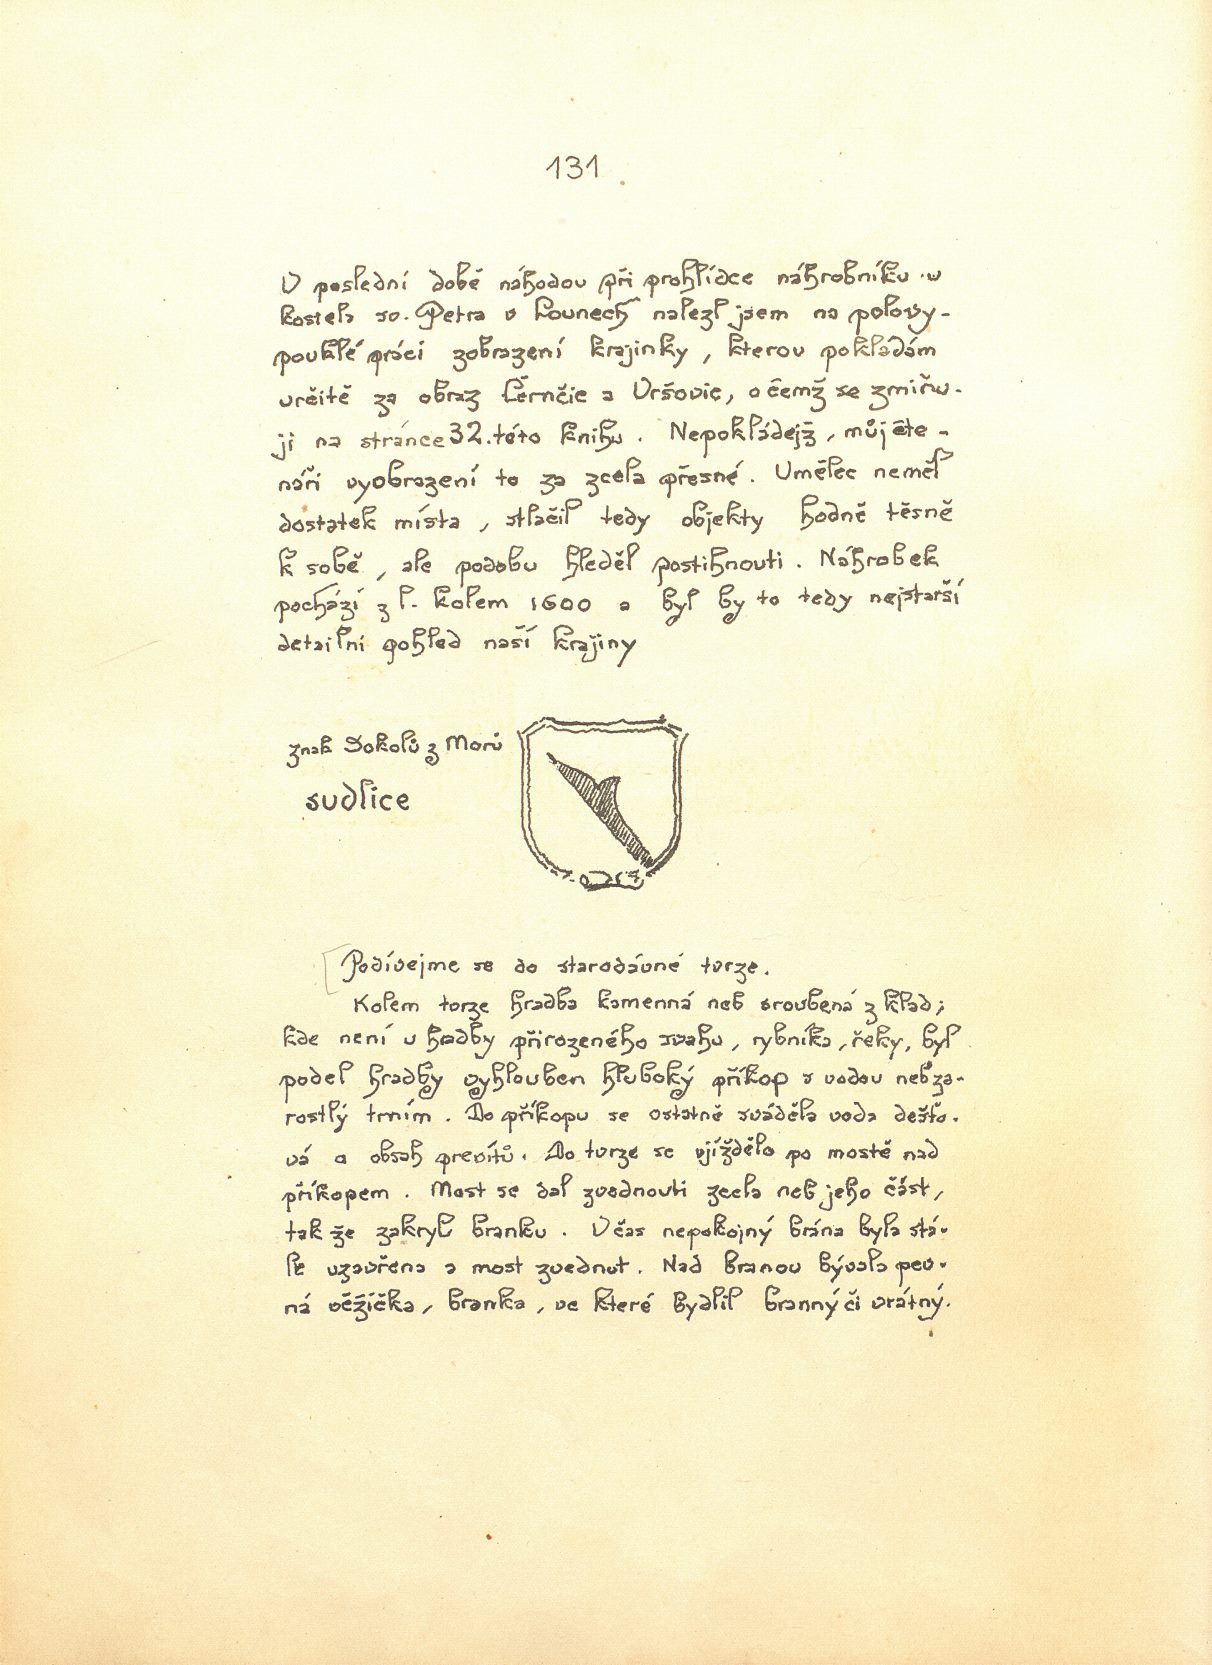 131
V poslední době náhodou při prohlídce náhrobníku u
kostela sv. Petra v Lounech nalezl jsem na polovy-
pouklé práci zobrazení krajinky, kterou pokládám
určitě za obraz Černčic a Vršovic, o čemž se zmiňu-
ji na stránce 32. této knihy. Nepokládejž, můj čte-
náři vyobrazení to za zcela přesné. Umělec neměl
dostatek místa, stlačil tedy objekty hodně těsně
k sobě, ale podobu hleděl postihnouti. Náhrobek
pochází z l. kolem 1600 a byl by to tedy nejstarší
detailní pohled naší krajiny
znak Sokolů z Morů
sudlice
Podívejme se do starodávné tvrze.
Kolem tvrze hradba kamenná neb sroubená z klad;
kde není u hradby přirozeného svahu, rybníka, řeky, byl
podel hradby vyhlouben hluboký příkop s vodou neb za-
rostlý trním. Do příkopu se ostatně sváděla voda dešťo-
vá a obsah prevítů. Do tvrze se vjíždělo po mostě nad
příkopem. Most se dal zvednouti zcela neb jeho část,
tak že zakryl branku. V čas nepokojný brána byla stá-
le uzavřena a most zvednut. Nad branou bývala pev-
ná věžička, branka, ve které bydlil branný či vrátný.